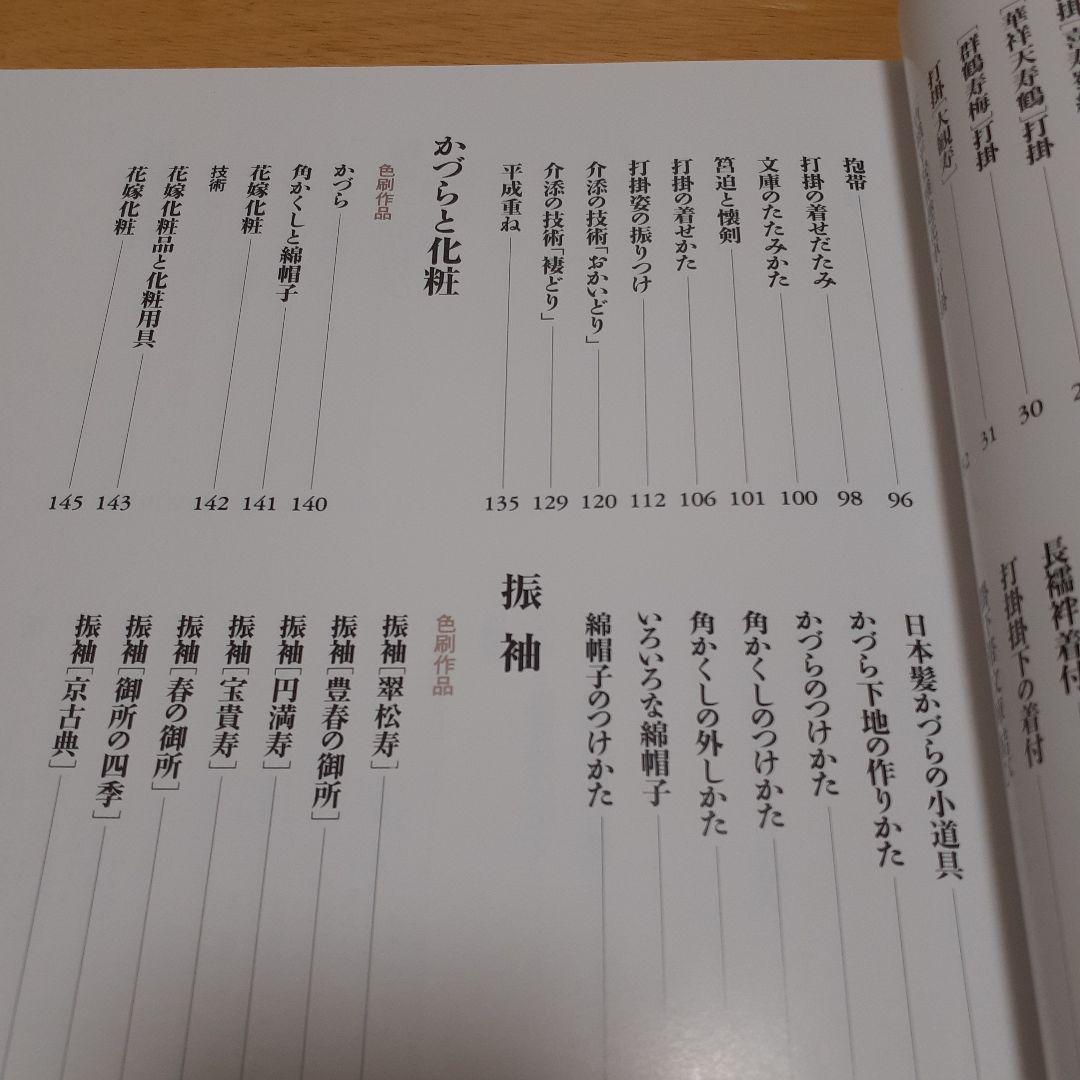 [華祥天寿鶴]打掛
30
[群鶴寿梅]打掛
31
打掛[大観寿]
長襦袢着付
打掛掛下の着付
抱帯
96
打掛の着せだたみ
98
文庫のたたみかた
100
筥迫と懐剣
101
打掛の着せかた
106
打掛姿の振りつけ
112
介添の技術「おかいどり」
120
介添の技術「褄どり」
129
平成重ね
135
かづらと化粧
色刷作品
かづら
140
角かくしと綿帽子
141
花嫁化粧
142
技術
花嫁化粧品と化粧用具
143
花嫁化粧
145
日本髪かづらの小道具
かづら下地の作りかた
かづらのつけかた
角かくしのつけかた
角かくしの外しかた
いろいろな綿帽子
綿帽子のつけかた
振袖
色刷作品
振袖[翠松寿]
振袖[豊春の御所]
振袖[円満寿]
振袖[宝貴寿]
振袖[春の御所]
振袖[御所の四季]
振袖[京古典]